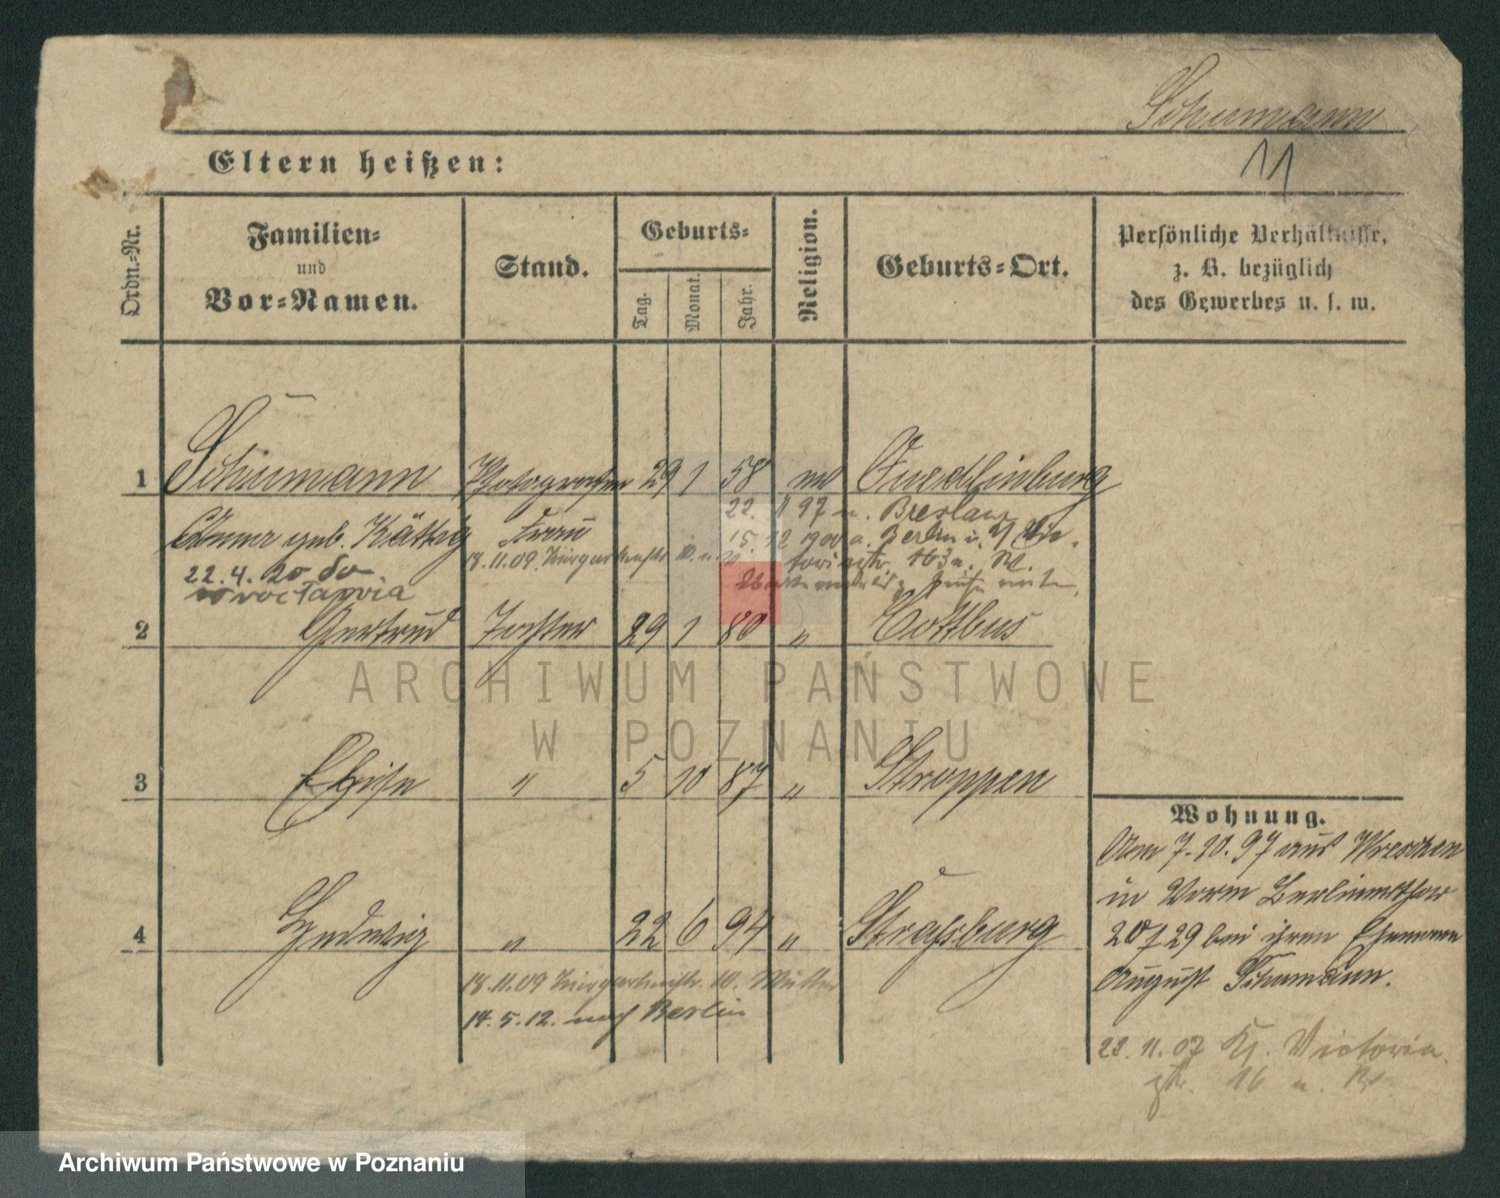 Schumann
Eltern heißen:
11
Ordn.-Nr.
Familien-
und
Vor-Namen.
Stand.
Geburts-
Tag.
Monat.
Jahr.
Religion.
Geburts-Ort.
Persönliche Verhältnisse,
z. B. bezüglich
des Gewerbes u. s. w.
1 Schumann Photografen 29 1 58 Quedlinburg
Anna geb. Kättig Frau
22. 97 n. Breslau
15. 12 1900 a. Berlin
18.11.09.
22.4.20 do
Wrocławia
2 Gertrud Tochter 29 1 80 " Cottbus
3 Elise " 5 10 87 " Stroppen
4 Hedwig " 22 6 94 " Straßburg
18.11.09 10. Müller
14.5.12. nach Berlin
Wohnung.
Am 7.10.97 aus Wreschen
in
20/29 bei ihrem Ehemann
August Schumann.
22.11.07 Victoria
str. 16
ARCHIWUM PAŃSTWOWE
W POZNANIU
Archiwum Państwowe w Poznaniu